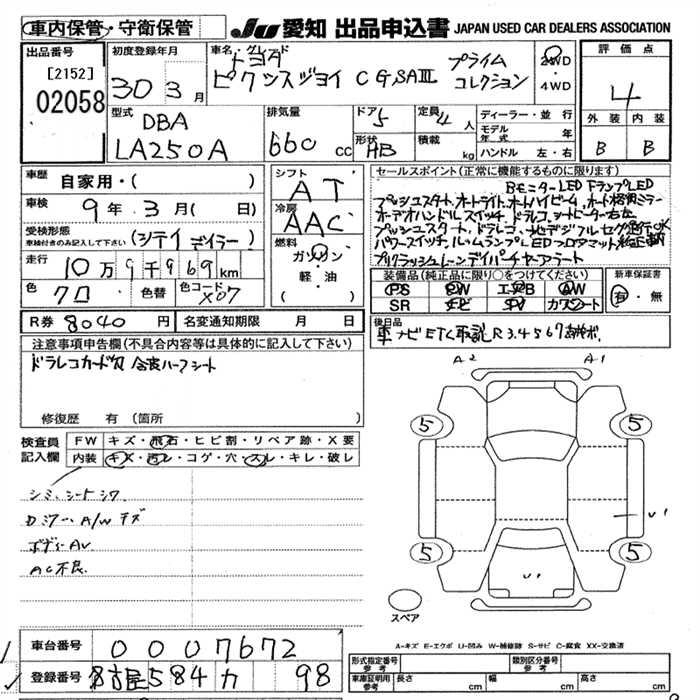 車内保管・守衛保管
JU 愛知 出品申込書 JAPAN USED CAR DEALERS ASSOCIATION
出品番号
[2152]
02058
初度登録年月
30年3月
車名・グレード
トヨタ
ピクシスジョイ C G,SAⅢ
プライム
コレクション
2WD
・4WD
評価点
4
外装 内装
B B
型式
DBA
LA250A
排気量
660 cc
ドア 5
形状 HB
定員 4 人
積載 kg
ディーラー・並行
モデル年式 年
ハンドル 左・右
車歴 自家用・( )
車検 9年3月( )
受検形態
車検付きのみ記入して下さい (シテイ デイラー)
走行 10万9千969km
色 クロ 色替 色コード X07
シフト AT
冷房 AAC
燃料
ガソリン
(軽・油)
セールスポイント(正常に機能するものに限ります)
BモニターLED FランプLED
プッシュスタート,オートライト,オートハイビーム,オート格納ミラー
プリクラッシュ レーンデイパチャーアラート
装備品(純正品に限り○をつけてください) 新車保証書
PS PW エアB AW
SR ナビ TV カワシート
有・無
R券 8040円 名変通知期限 月 日
後日品
車ナビETC取説R3.4567
注意事項申告欄(不具合内容等は具体的に記入して下さい)
ドラレコカード欠 合皮ハーフシート
修復歴 有(箇所
検査員記入欄
FW キズ・飛石・ヒビ割・リペア跡・X要
内装 キズ・汚レ・コゲ・穴・スレ・キレ・破レ
シミ,シートシワ
Dミラー A/Wキズ
ボディーAU
AC不良
A2 A1
5 5
U1
5 5
U1
スペア
A-キズ E-エクボ U-凹み W-補修跡 S-サビ C-腐食 XX-交換済
車台番号 0007672
登録番号 名古屋584カ 98
形式指定番号 参考
類別区分番号 参考
車庫証明用 参考 長さ cm 幅 cm 高さ cm